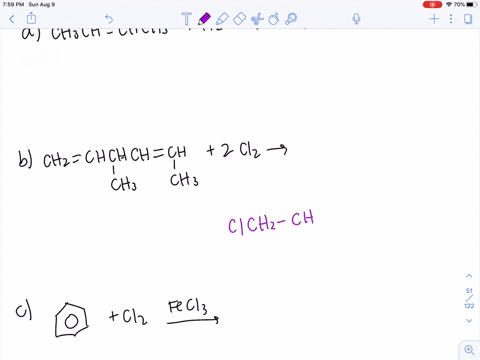 7:59 PM Sun Aug 9
70%
a) CH3CH=
b) CH2=CHCHCH=CH + 2 Cl2 →
CH3 CH3
ClCH2-CH
c) + Cl2 FeCl3 →
51
122